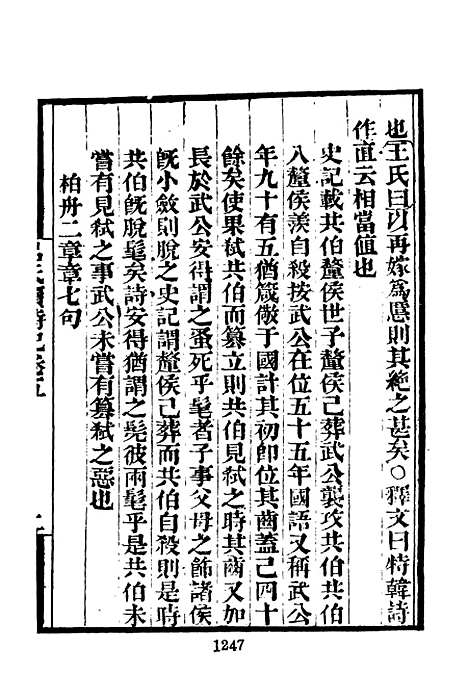 也王氏曰以再嫁為慝則其絶之甚矣○釋文曰特韓詩
作直云相當值也
史記載共伯釐侯世子釐侯已葬武公襲攻共伯共伯
入釐侯羨自殺按武公在位五十五年國語又稱武公
年九十有五猶箴儆于國計其初即位其齒蓋已四十
餘矣使果弑共伯而篡立則共伯見弑之時其齒又加
長於武公安得謂之蚤死乎髦者子事父母之飾諸侯
既小斂則脫之史記謂釐侯已葬而共伯自殺則是時
共伯既脫髦矣詩安得猶謂之髧彼兩髦乎是共伯未
嘗有見弑之事武公未嘗有篡弑之惡也
柏舟二章章七句
1247